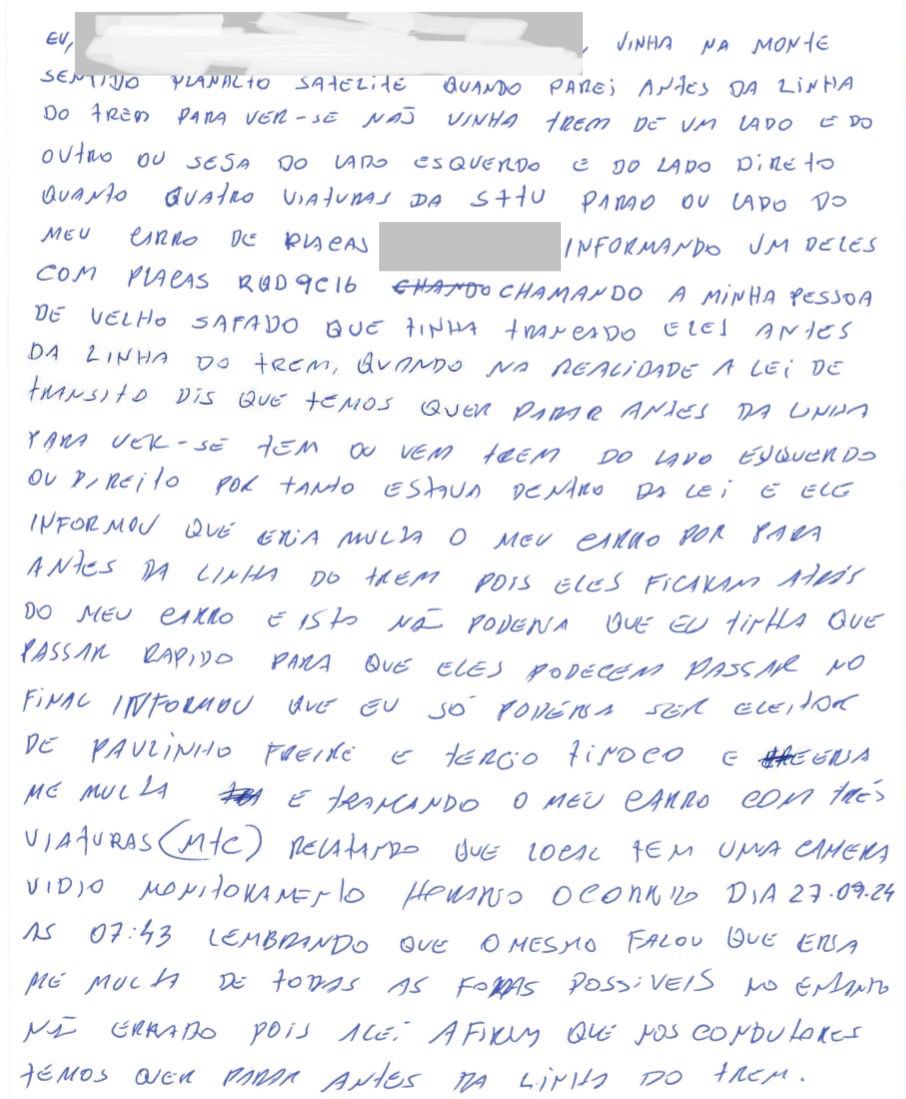 EU, , VINHA NA MONTE
SENTIDO PLANALTO SATELITE QUANDO PAREI ANTES DA LINHA
DO TREM PARA VER-SE NAS VINHA TREM DE UM LADO E DO
OUTRO OU SESA DO LADO ESQUERDO E DO LADO DIRETO
QUANTO QUATRO VIATURAS DA STTU PARAO OU LADO DO
MEU CARRO DE PLACAS INFORMANDO UM DELES
COM PLACAS RQD9C16 CHANDO CHAMANDO A MINHA PESSOA
DE VELHO SAFADO QUE TINHA TRANCADO ELES ANTES
DA LINHA DO TREM, QUANDO NA REALIDADE A LEI DE
TRANSITO DIS QUE TEMOS QUER PARAR ANTES DA LINHA
PARA VER-SE TEM OU VEM TREM DO LADO ESQUERDO
OU DIREITO POR TANTO ESTAVA DENTRO DA LEI E ELE
INFORMOU QUE ERIA MULTA O MEU CARRO POR PARA
ANTES DA LINHA DO TREM POIS ELES FICARAM ATRÁS
DO MEU CARRO E ISTO NÃ PODERIA QUE EU TINHA QUE
PASSAR RAPIDO PARA QUE ELES PODECEM PASSAR NO
FINAL INFORMOU QUE EU SÓ PODERIA SER ELEITOR
DE PAULINHO FREIRE E TERCIO TINOCO E ERIA
ME MULTA E TRANCANDO O MEU CARRO COM TRÊS
VIATURAS (MTC) RELATANDO QUE LOCAL TEM UMA CAMERA
VIDIO MONITORAMENTO OCORRIDO DIA 27.09.24
AS 07:43 LEMBRANDO QUE O MESMO FALOU QUE ERIA
ME MULTA DE TODAS AS FORAS POSSIVEIS NO ENTANTO
NÃ ERRADO POIS ALEI AFIRMA QUE NOS CONDUTORES
TEMOS QUER PARAR ANTES DA LINHA DO TREM.